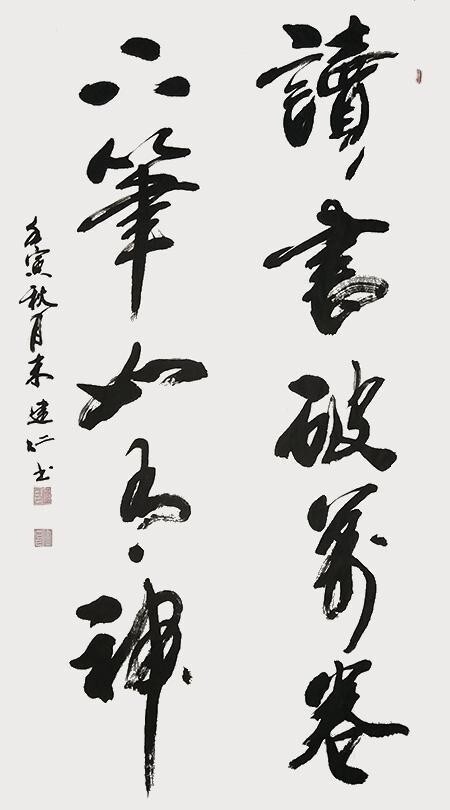 讀書破萬卷
下筆如有神
壬寅秋月朱建仁书